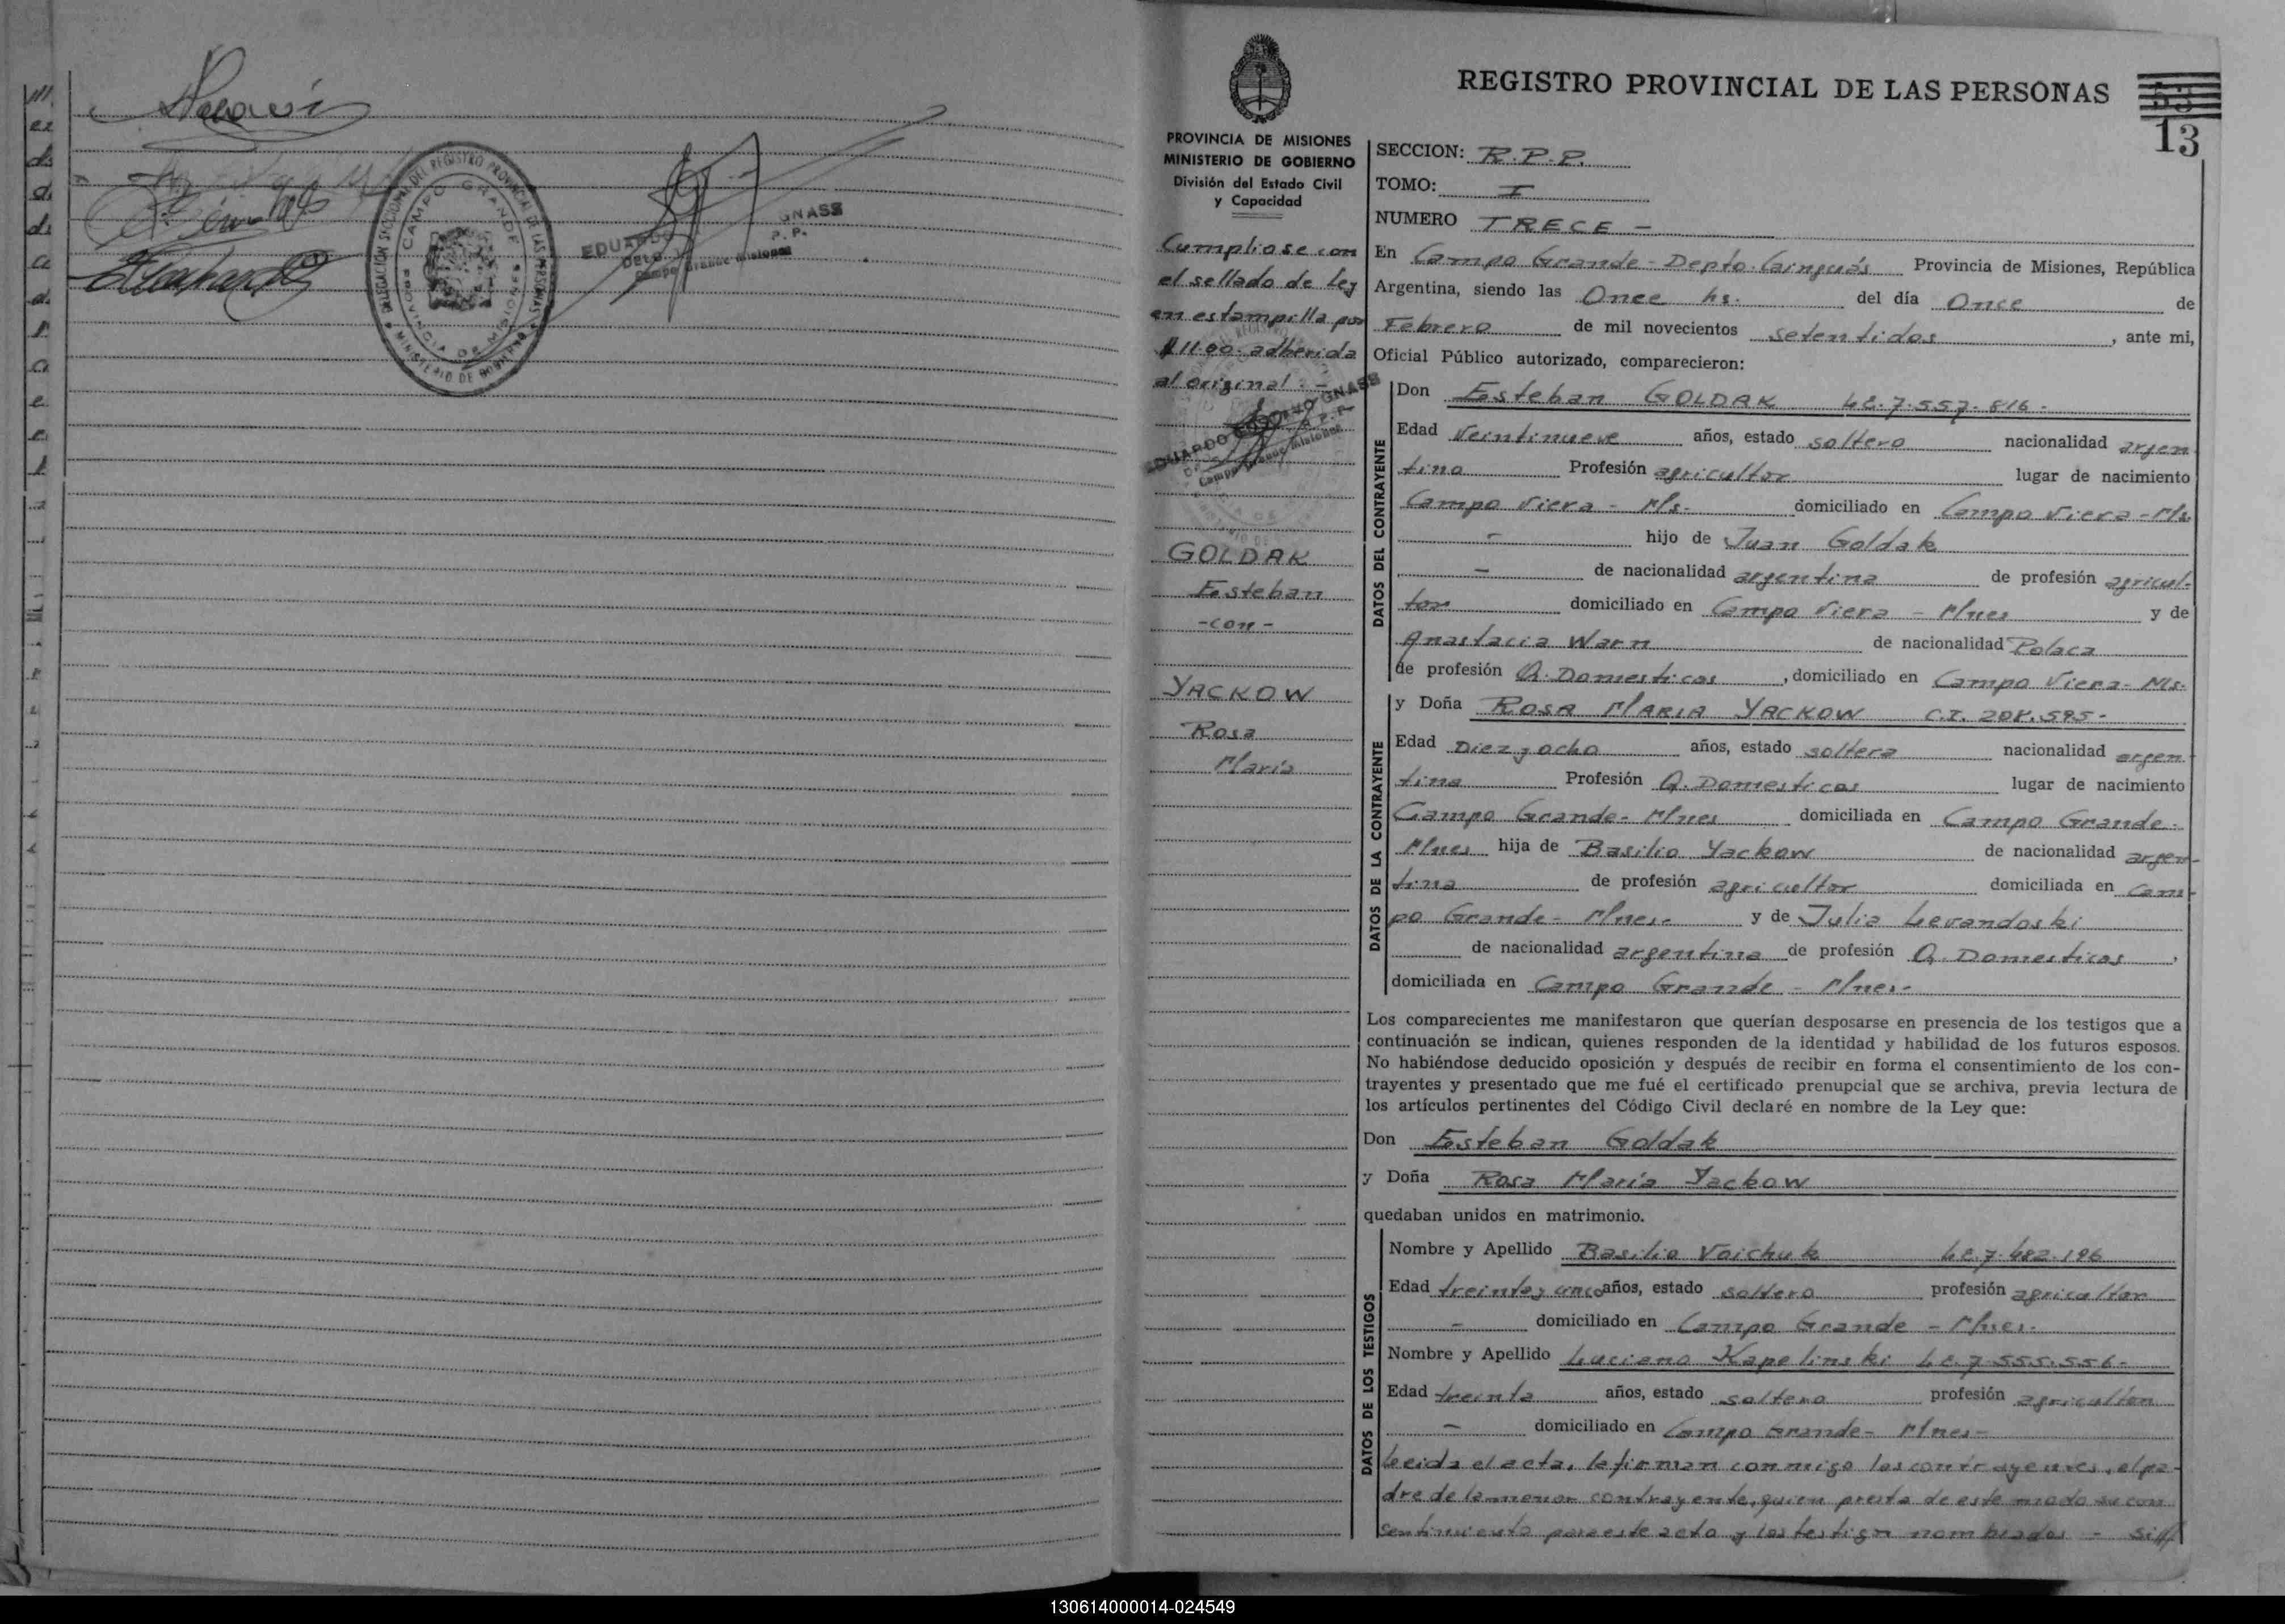 DELEGACION SECCIONAL DEL REGISTRO PROVINCIAL DE LAS PERSONAS
CAMPO GRANDE
PROVINCIA DE MISIONES
MINISTERIO DE GOBIERNO
EDUARDO GNASS
R. P. P.
Campo Grande Misiones
REGISTRO PROVINCIAL DE LAS PERSONAS
53
13
PROVINCIA DE MISIONES
MINISTERIO DE GOBIERNO
División del Estado Civil
y Capacidad
Cumpliose con
el sellado de Ley
en estampilla por
$11.00 adherida
al original. -
EDUARDO GUSTAVO GNASS
R. P. P.
Campo Grande Misiones
GOLDAK
Esteban
-con-
YACKOW
Rosa
María
SECCION: R.P.P.
TOMO: I
NUMERO TRECE -
En Campo Grande - Depto. Cainguás Provincia de Misiones, República
Argentina, siendo las Once hs. del día Once de
Febrero de mil novecientos setentidos, ante mi,
Oficial Público autorizado, comparecieron:
DATOS DEL CONTRAYENTE
Don Esteban GOLDAK L.E. 7.557.816-
Edad Veintinueve años, estado soltero nacionalidad argen
tina Profesión agricultor lugar de nacimiento
Campo Viera - M/s- domiciliado en Campo Viera - M/s.
- hijo de Juan Goldak
- de nacionalidad argentina de profesión agricul-
tor domiciliado en Campo Viera - Mnes y de
Anastacia Warn de nacionalidad Polaca
de profesión Q. Domesticos, domiciliado en Campo Viera- Mls.
DATOS DE LA CONTRAYENTE
y Doña ROSA MARIA YACKOW C.I. 208.595-
Edad Diez y ocho años, estado soltera nacionalidad argen
tina Profesión Q. Domesticos lugar de nacimiento
Campo Grande- Mnes domiciliada en Campo Grande-
Mnes hija de Basilio Yackow de nacionalidad argen-
tina de profesión agricultor domiciliada en Cam-
po Grande- Mnes- y de Julia Levandoski
de nacionalidad argentina de profesión Q. Domesticos,
domiciliada en Campo Grande - Mnes-
Los comparecientes me manifestaron que querían desposarse en presencia de los testigos que a
continuación se indican, quienes responden de la identidad y habilidad de los futuros esposos.
No habiéndose deducido oposición y después de recibir en forma el consentimiento de los con-
trayentes y presentado que me fué el certificado prenupcial que se archiva, previa lectura de
los artículos pertinentes del Código Civil declaré en nombre de la Ley que:
Don Esteban Goldak
y Doña Rosa María Yackow
quedaban unidos en matrimonio.
DATOS DE LOS TESTIGOS
Nombre y Apellido Basilio Voichuk L.E. 7.482.196
Edad treinta y cinco años, estado soltero profesión agricultor
- domiciliado en Campo Grande - Mnes.
Nombre y Apellido Luciano Kapelinski L.E. 7.555.556-
Edad treinta años, estado soltero profesión agricultor
- domiciliado en Campo Grande- Mnes-
Leida el acta, la firman conmigo los contrayentes, el pa-
dre de la menor contrayente, quien presta de este modo su con
sentimiento para este acto y los testigos nombrados -
130614000014-024549